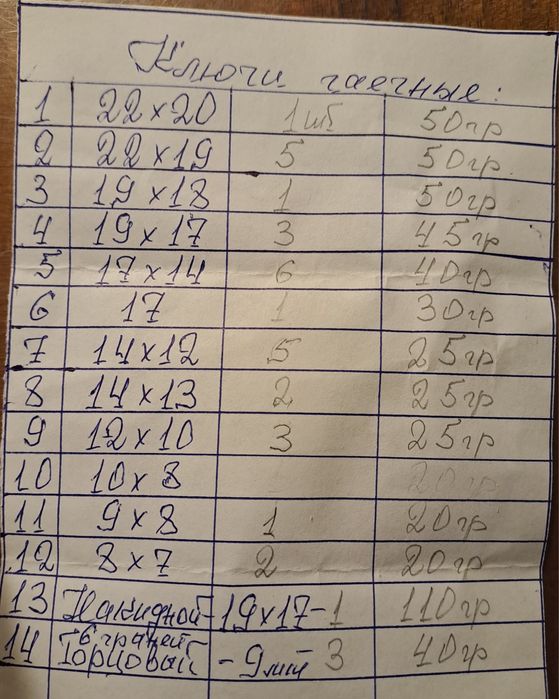 Ключи гаечные:
1 22×20 1шт 50гр
2 22×19 5 50гр.
3 19×18 1 50гр
4 19×17 3 45гр
5 17×14 6 40гр
6 17 1 30гр
7 14×12 5 25гр
8 14×13 2 25гр
9 12×10 3 25гр
10 10×8 20гр
11 9×8 1 20гр
12 8×7 2 20гр
13 Накидной-19×17-1 110гр
6 граней
14 Торцовый - 9мм 3 40гр